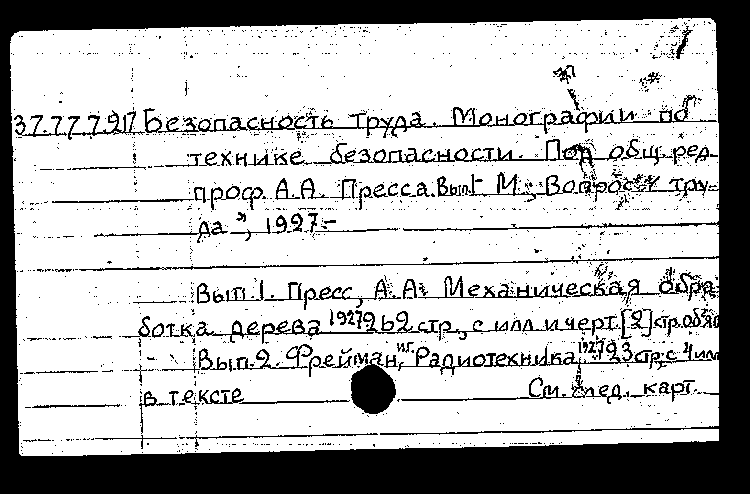 37.77.7.917 Безопасность труда. Монографии по
технике безопасности. Под общ. ред.
проф. А.А. Пресса. Вып.1- М., "Вопросы тру-
да", 1927.-
Вып.1. Пресс, А.А. Механическая обра-
ботка дерева 1927 262 стр., с илл. и черт. [2] стр. объя
Вып.2. Фрейман, И.Г. Радиотехника 1927 123 стр., с илл
в тексте См. след. карт.